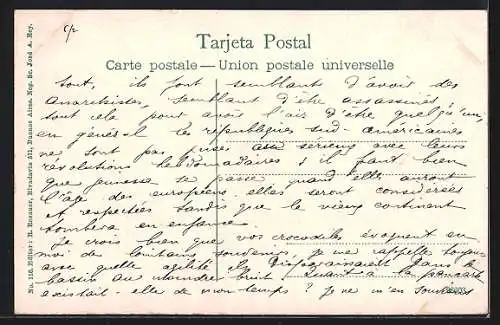 c/2
Tarjeta Postal
Carte postale — Union postale universelle
No. 116. Editor: R. Rosauer, Rivadavia 571, Buenos Aires. Neg. Sr. José A. Rey.
tout, ils font semblants d'avoir des
anarchistes, semblant d'être assassinés
tout cela pour avoir l'air d'être quelqu'un,
en général les républiques sud américaines
ne sont pas prises assez sérieux avec leurs
révolutions hebdomadaires & il faut bien
que jeunesse se passe quand elles auront
l'âge des européens elles seront considérées
et respectées tandis que le vieux continent
tombera en enfance.
Je crois bien que vos crocodiles évoquent en
moi de lointains souvenirs, je me rappelle toujours
avec quelle agilité ils disparaissaient dans le
bassin au moindre bruit. Quant à la pancarte
existait elle de mon temps? Je ne m'en souviens